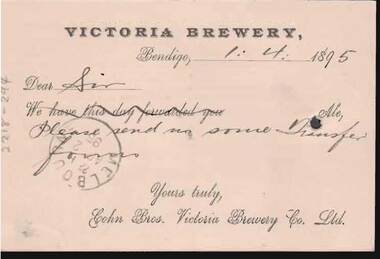 VICTORIA BREWERY,
Bendigo, 1. 4. 1895
Dear Sir
We have this day forwarded you Ale,
Please send us some Transfer
forms
Yours truly,
Cohn Bros. Victoria Brewery Co. Ltd.